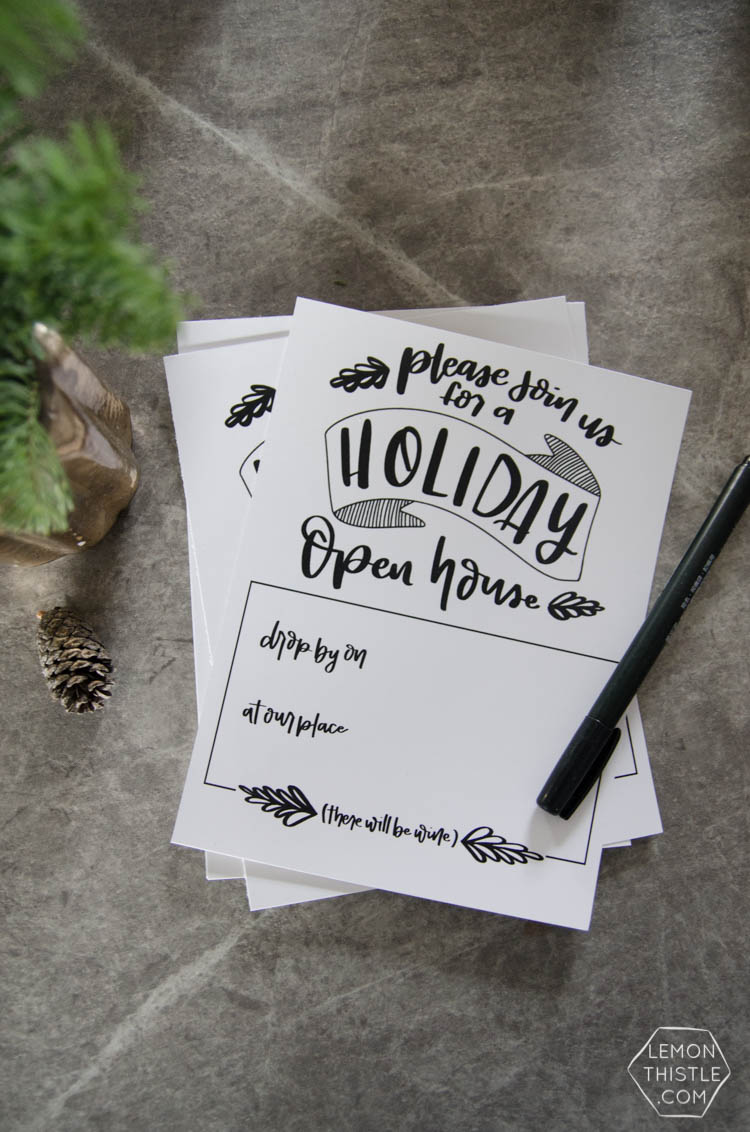 please join us
for a
HOLIDAY
Open house
drop by on
at our place
(there will be wine)
LEMON
THISTLE
.COM